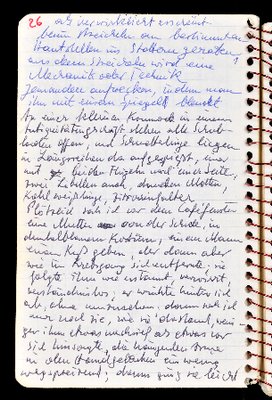 26 als verwirklicht erscheint
beim Streicheln an bestimmten
Hautstellen ins Stottern geraten;
aus dem Streicheln wird eine
Mechanik oder Technik
Jemanden aufwecken, indem man
ihn mit einem Spiegel blendet
In einer kleinen Kommode in einem
Antiquitätengeschäft stehen alle Schub-
laden offen, und Schmetterlinge liegen
in Längsreihen da aufgespießt, einer
mit beiden Flügeln auf einer Seite,
zwei Libellen auch, daneben Motten,
Kohlweißlinge, Zitronenfalter
Plötzlich sah ich vor dem Caféfenster
eine Mutter von der Schule, in
dunkelblauem Kostüm, einem Mann
einen Kuß geben, der dann aber
wie im Krebsgang sich entfernte; sie
folgte ihm wie erstaunt, verwirrt,
verständnislos; er winkte hinter sich
ab, ohne umzusehen; dann sah ich
nur noch sie, wie sie dastand, weni-
ger ihm etwas nachrief als etwas vor
sich hinsagte, die hängenden Arme
in den Handgelenken ein wenig
wegspreizend; dann ging sie leicht